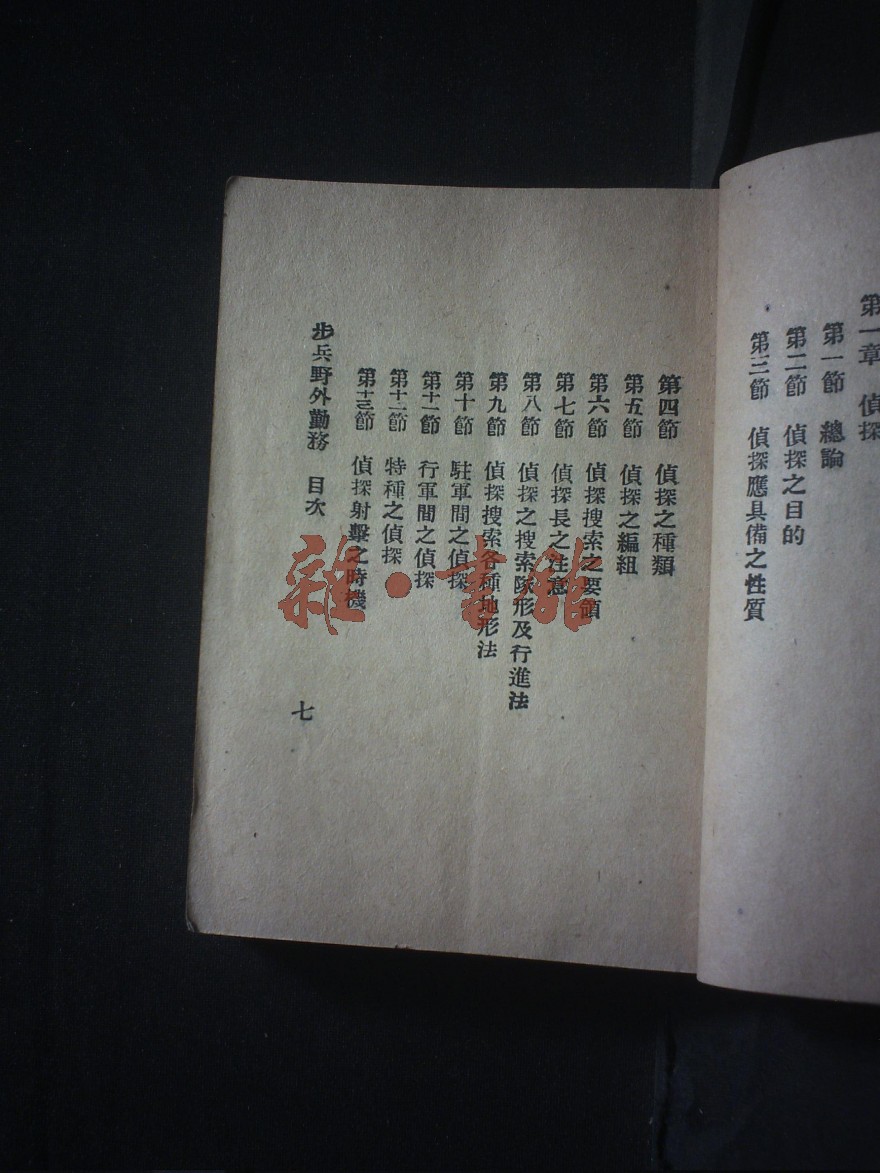 第一章　偵探
第一節　總論
第二節　偵探之目的
第三節　偵探應具備之性質
第四節　偵探之種類
第五節　偵探之編組
第六節　偵探搜索之要領
第七節　偵探長之注意
第八節　偵探之搜索隊形及行進法
第九節　偵探搜索各種地形法
第十節　駐軍間之偵探
第十一節　行軍間之偵探
第十二節　特種之偵探
第十三節　偵探射擊之時機
步兵野外勤務　目次
七
雜·書館